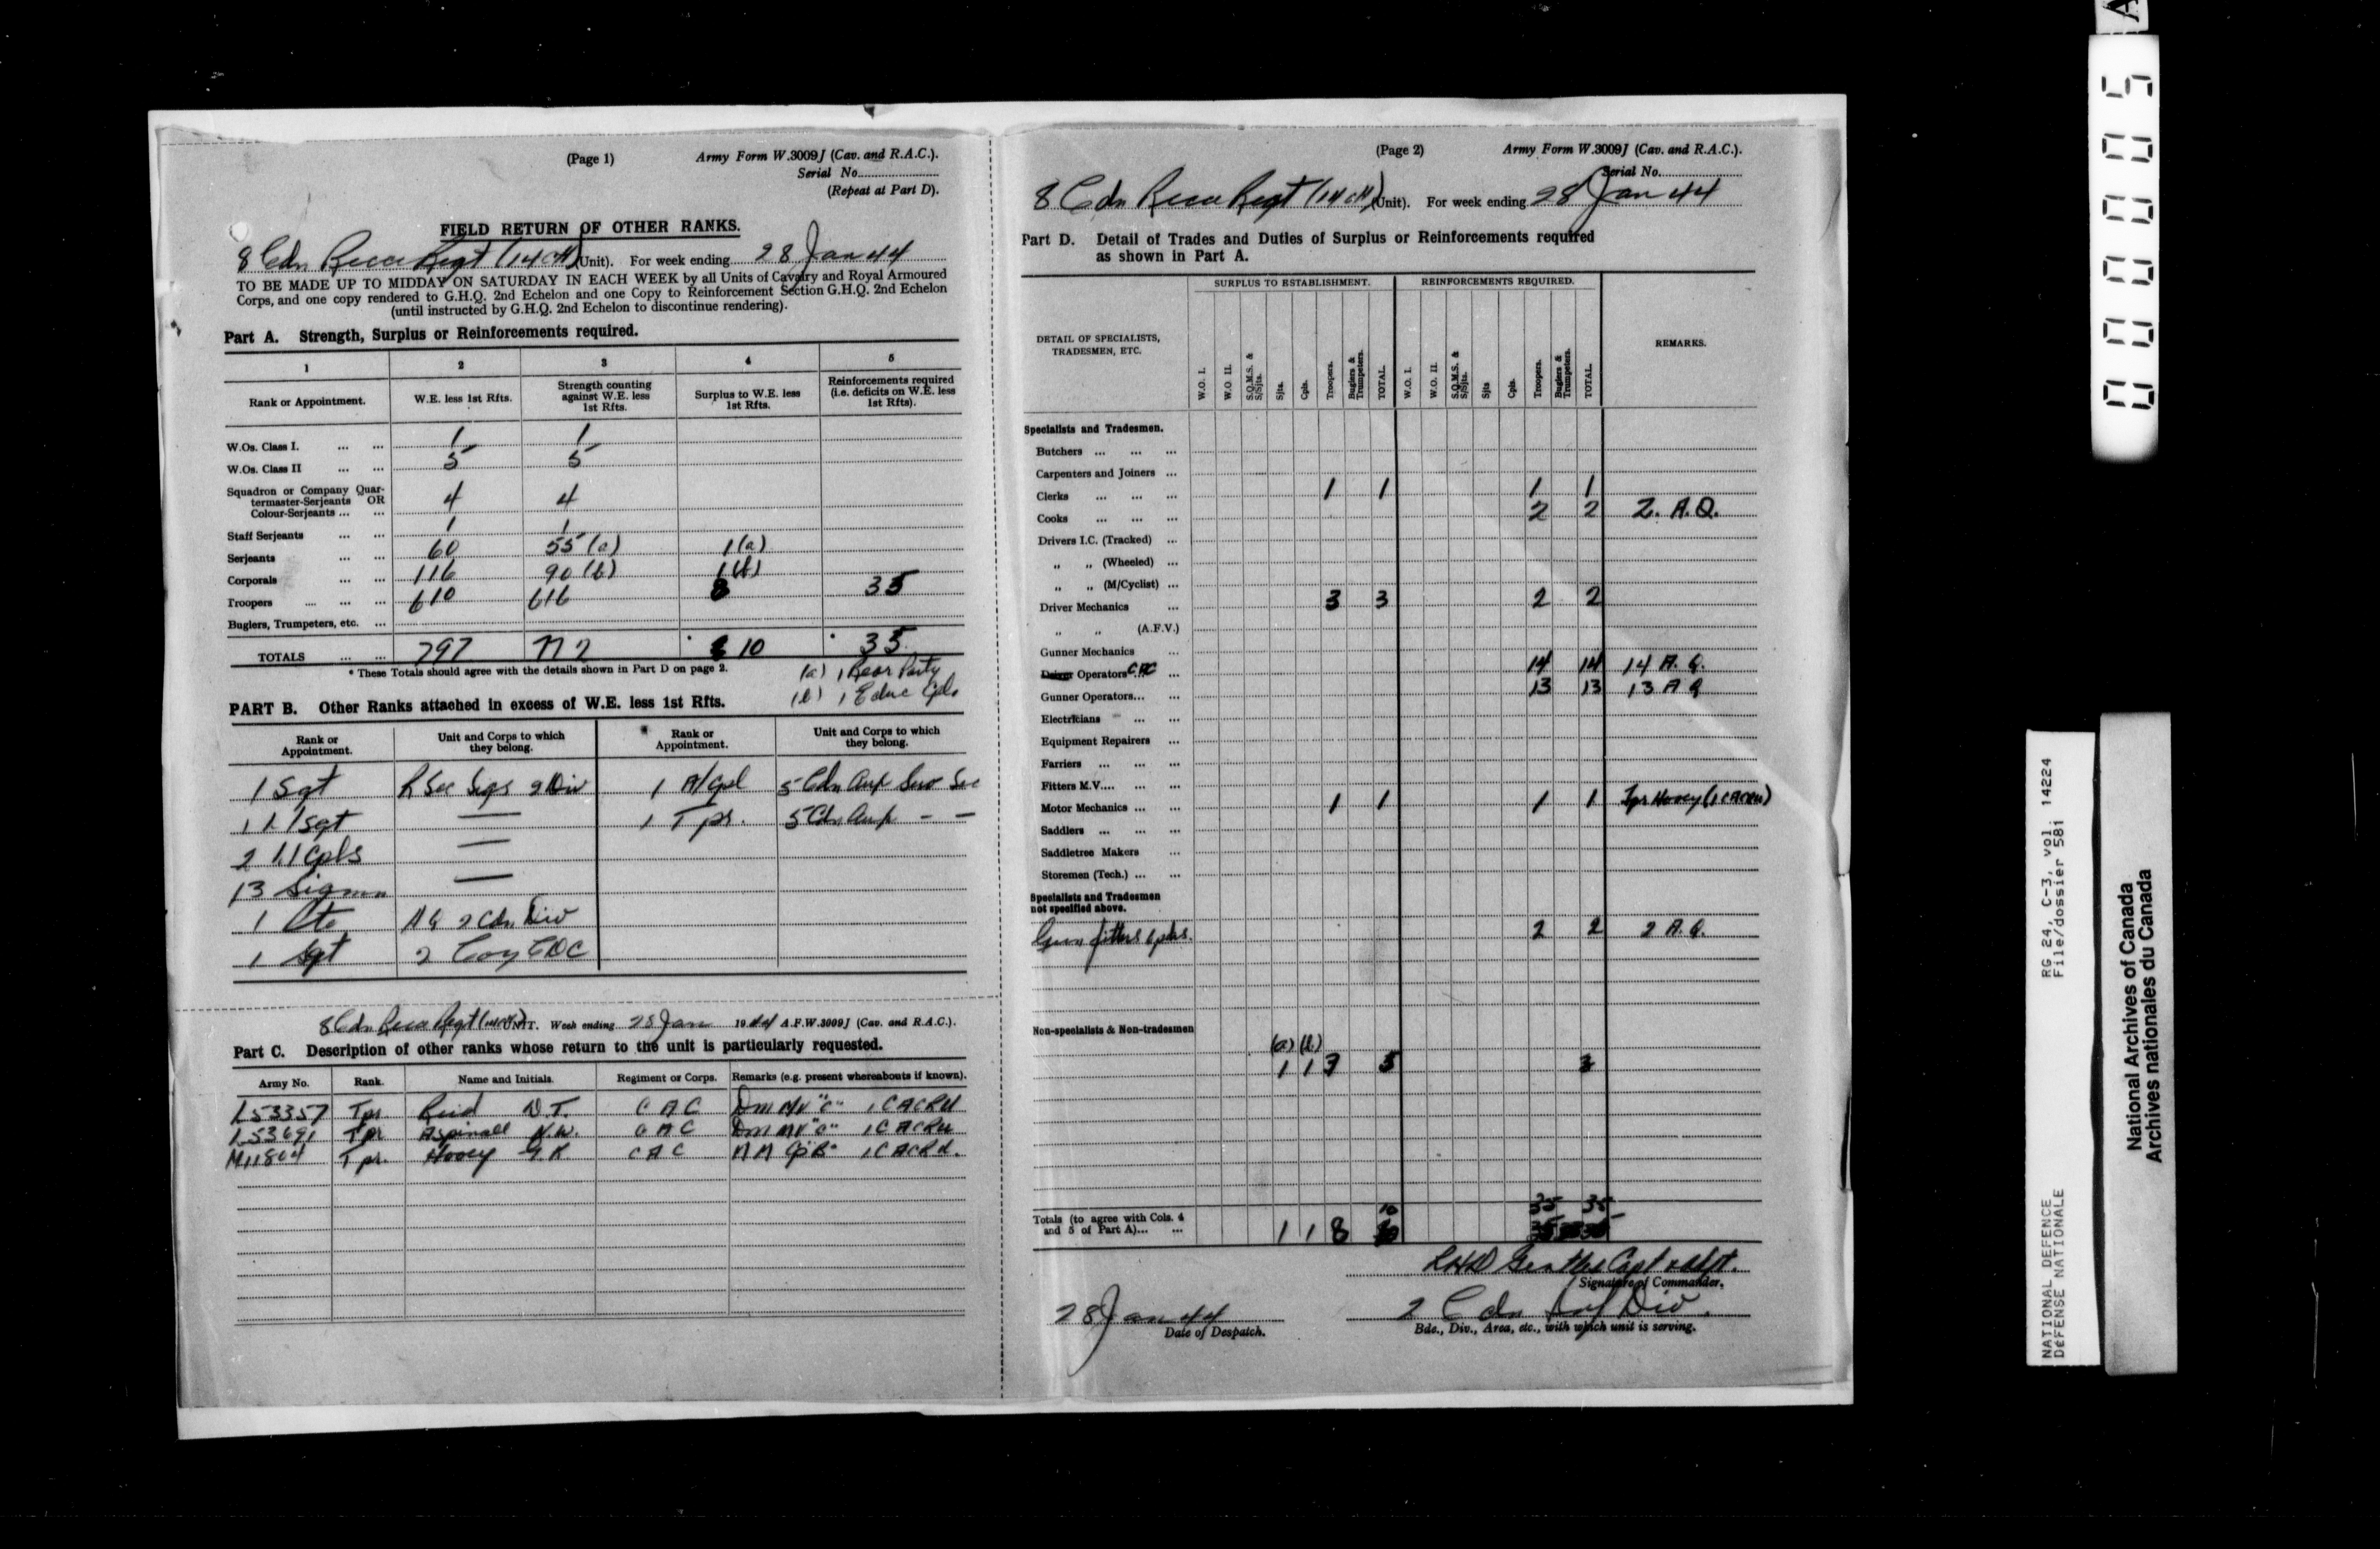 (Page 1) Army Form W.3009J (Cav. and R.A.C.).
Serial No.
(Repeat at Part D).
FIELD RETURN OF OTHER RANKS.
8 Cdn Recce Regt (14 CH) (Unit). For week ending 28 Jan 44
TO BE MADE UP TO MIDDAY ON SATURDAY IN EACH WEEK by all Units of Cavalry and Royal Armoured
Corps, and one copy rendered to G.H.Q. 2nd Echelon and one Copy to Reinforcement Section G.H.Q. 2nd Echelon
(until instructed by G.H.Q. 2nd Echelon to discontinue rendering).
Part A. Strength, Surplus or Reinforcements required.
1 2 3 4 5
Rank or Appointment. W.E. less 1st Rfts. Strength counting against W.E. less 1st Rfts. Surplus to W.E. less 1st Rfts. Reinforcements required (i.e. deficits on W.E. less 1st Rfts).
W.Os. Class I. ... ... 1 1
W.Os. Class II ... ... 5 5
Squadron or Company Quar-
termaster-Serjeants OR 4 4
Colour-Serjeants ... ...
Staff Serjeants ... ... 1 1
Serjeants ... ... 60 55 (a) 1 (a)
Corporals ... ... 116 90 (b) 1 (b)
Troopers ... ... ... 610 616 8 35
Buglers, Trumpeters, etc. ...
TOTALS ... ... 797 772 * 10 * 35
* These Totals should agree with the details shown in Part D on page 2.
(a) 1 Rear Party
(b) 1 Educ Cpl
PART B. Other Ranks attached in excess of W.E. less 1st Rfts.
Rank or Appointment. Unit and Corps to which they belong. Rank or Appointment. Unit and Corps to which they belong.
1 Sgt Sec Sigs 2 Div 1 A/Cpl 5 Cdn Aux Sec
1 L/Sgt — 1 Tpr. 5 Cdn Aux — —
2 L/Cpls —
13 Sigmn —
1 Pte 2 Cdn Div
1 Sgt 2 Coy CDC
8 Cdn Recce Regt (14 CH) UNIT. Week ending 28 Jan 1944 A.F.W.3009J (Cav. and R.A.C.).
Part C. Description of other ranks whose return to the unit is particularly requested.
Army No. Rank. Name and Initials. Regiment or Corps. Remarks (e.g. present whereabouts if known).
L53357 Tpr Reid N.T. CAC Dm MV "C" 1 CACRU
L53691 Tpr Aspinall N.W. CAC Dm MV "C" 1 CACRU
M11804 Tpr. Hovey G R CAC 1 CACRU.
(Page 2) Army Form W.3009J (Cav. and R.A.C.).
Serial No.
8 Cdn Recce Regt (14 CH) (Unit). For week ending 28 Jan 44
Part D. Detail of Trades and Duties of Surplus or Reinforcements required
as shown in Part A.
SURPLUS TO ESTABLISHMENT. REINFORCEMENTS REQUIRED.
DETAIL OF SPECIALISTS, TRADESMEN, ETC. W.O. I. W.O II. S.Q.M.S. & S/Sjts. Sjts. Cpls. Troopers. Buglers & Trumpeters. TOTAL. W.O. I. W.O. II. S.Q.M.S. & S/Sjts. Sjts Cpls. Troopers. Buglers & Trumpeters. TOTAL. REMARKS.
Specialists and Tradesmen.
Butchers ... ... ...
Carpenters and Joiners ...
Clerks ... ... ... 1 1 1 1
Cooks ... ... ... 2 2 2. A.Q.
Drivers I.C. (Tracked) ...
„ „ (Wheeled) ...
„ „ (M/Cyclist) ...
Driver Mechanics ... 3 3 2 2
„ „ (A.F.V.)
Gunner Mechanics ...
Driver Operators CAC ... 14 14 14 A.Q.
Gunner Operators... ... 13 13 13 A Q
Electricians ... ...
Equipment Repairers ...
Farriers ... ... ...
Fitters M.V.... ... ...
Motor Mechanics ... ... 1 1 1 1 Tpr Hovey (1 CACRU)
Saddlers ... ... ...
Saddletree Makers ...
Storemen (Tech.) ... ...
Specialists and Tradesmen
not specified above.
Gun fitters 2 2 2 A.Q.
Non-specialists & Non-tradesmen
(a) (b)
1 1 3 5
10 35 35
Totals (to agree with Cols. 4
and 5 of Part A)... ... 1 1 8
Capt & Adjt.
Signature of Commander.
28 Jan 44 2 Cdn Inf Div.
Date of Despatch. Bde., Div., Area, etc., with which unit is serving.
00005
RG 24, C-3, vol. 14224
File/dossier 581
NATIONAL DEFENCE
DÉFENSE NATIONALE
National Archives of Canada
Archives nationales du Canada